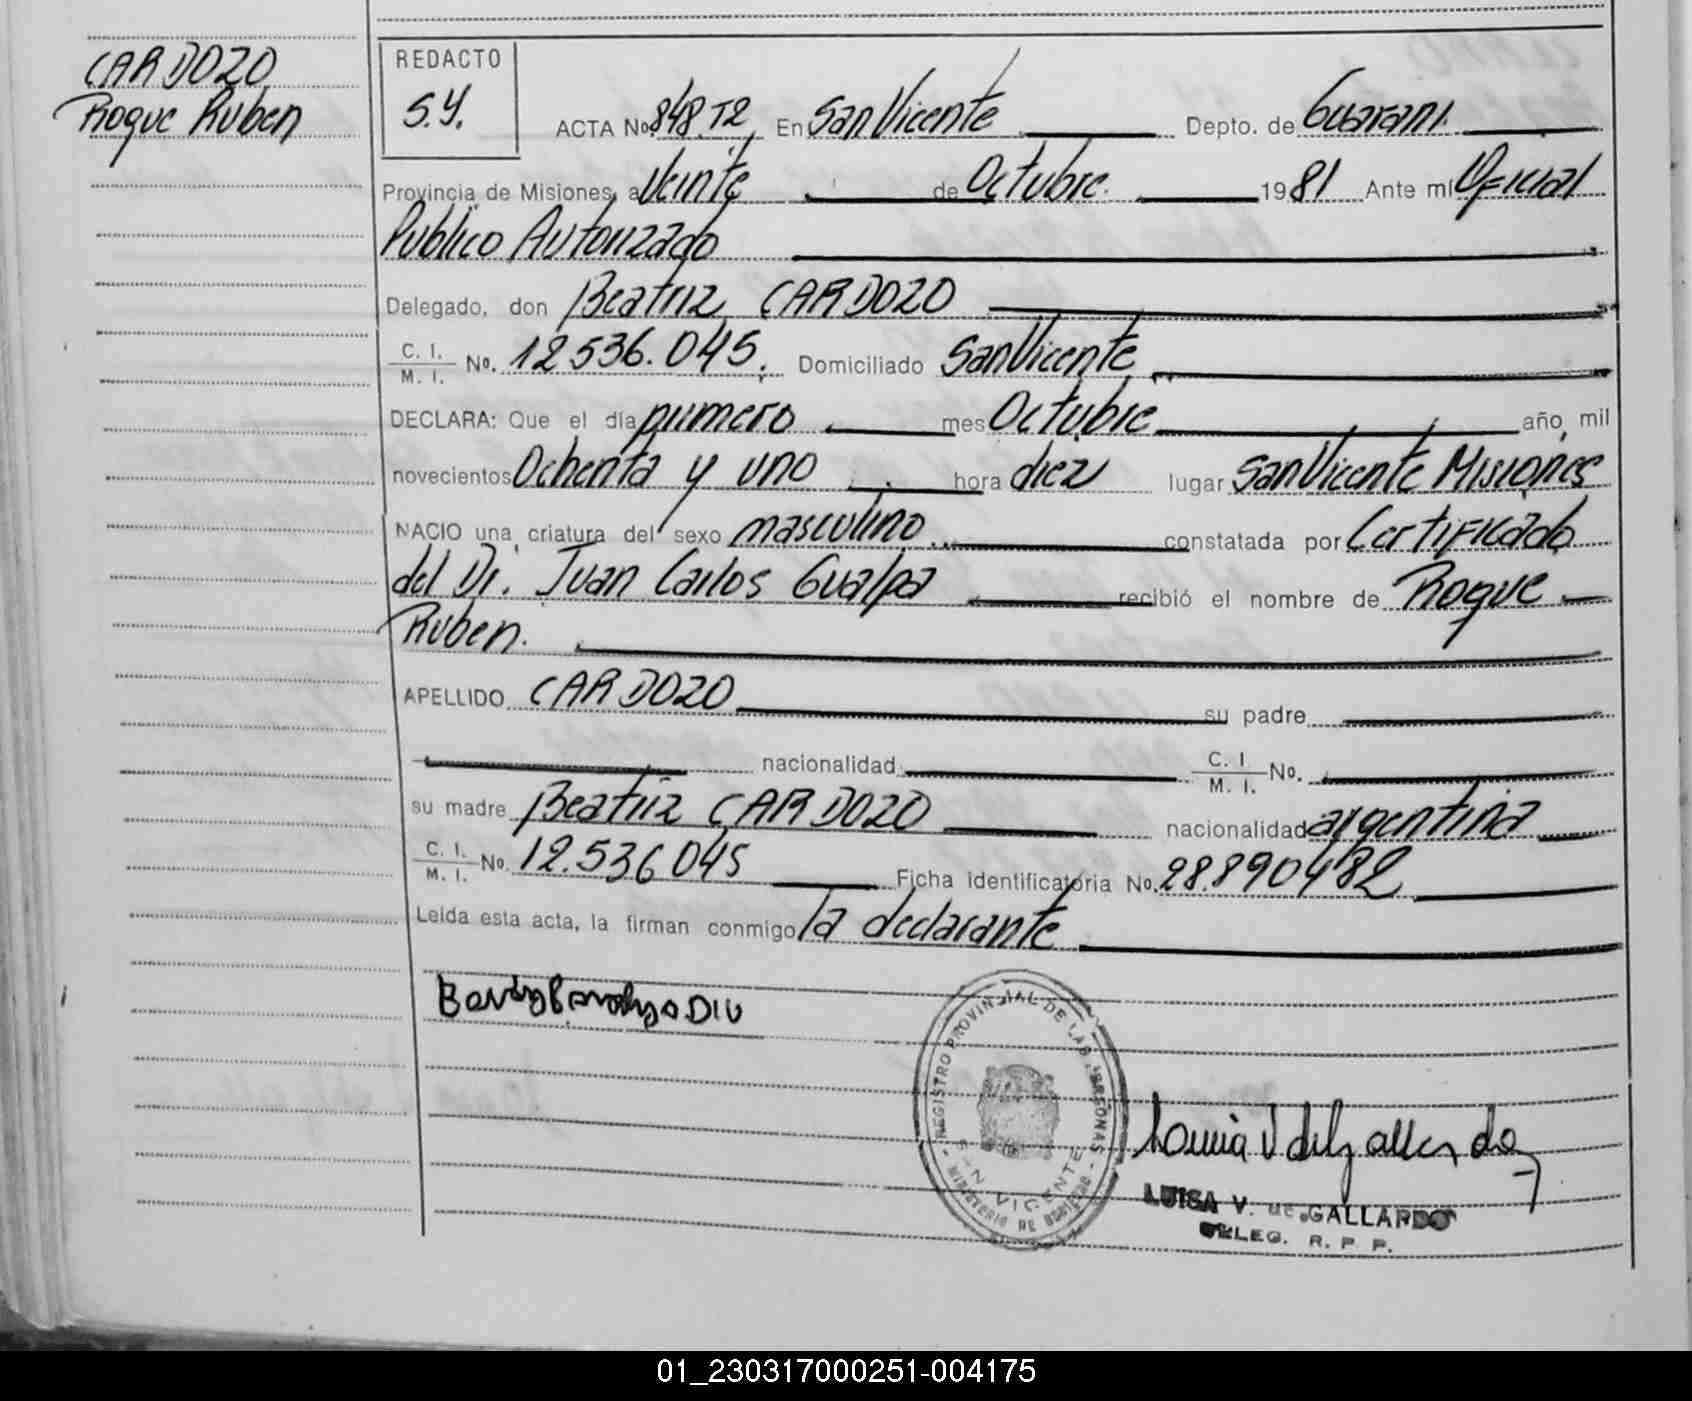 CARDOZO
Roque Ruben
REDACTO
S.Y.
ACTA No. 848.T2 En San Vicente Depto. de Guarani
Provincia de Misiones, a Veinte de Octubre 1981 Ante mí Oficial
Publico Autorizado
Delegado, don Beatriz CARDOZO
C. I. / M. I. No. 12.536.045. Domiciliado San Vicente
DECLARA: Que el día primero mes Octubre año mil
novecientos Ochenta y uno hora diez lugar San Vicente Misiones
NACIO una criatura del sexo masculino constatada por Certificado
del Dr. Juan Carlos Gualpa recibió el nombre de Roque
Ruben.
APELLIDO CARDOZO su padre
nacionalidad C. I. / M. I. No.
su madre Beatriz CARDOZO nacionalidad argentina
C. I. / M. I. No. 12.536045 Ficha identificatoria No. 28.890482
Leída esta acta, la firman conmigo la declarante
REGISTRO PROVINCIAL DE LAS PERSONAS
SAN VICENTE
MINISTERIO DE GOBIERNO
LUISA V. de GALLARDO
DELEG. R. P. P.
01_230317000251-004175